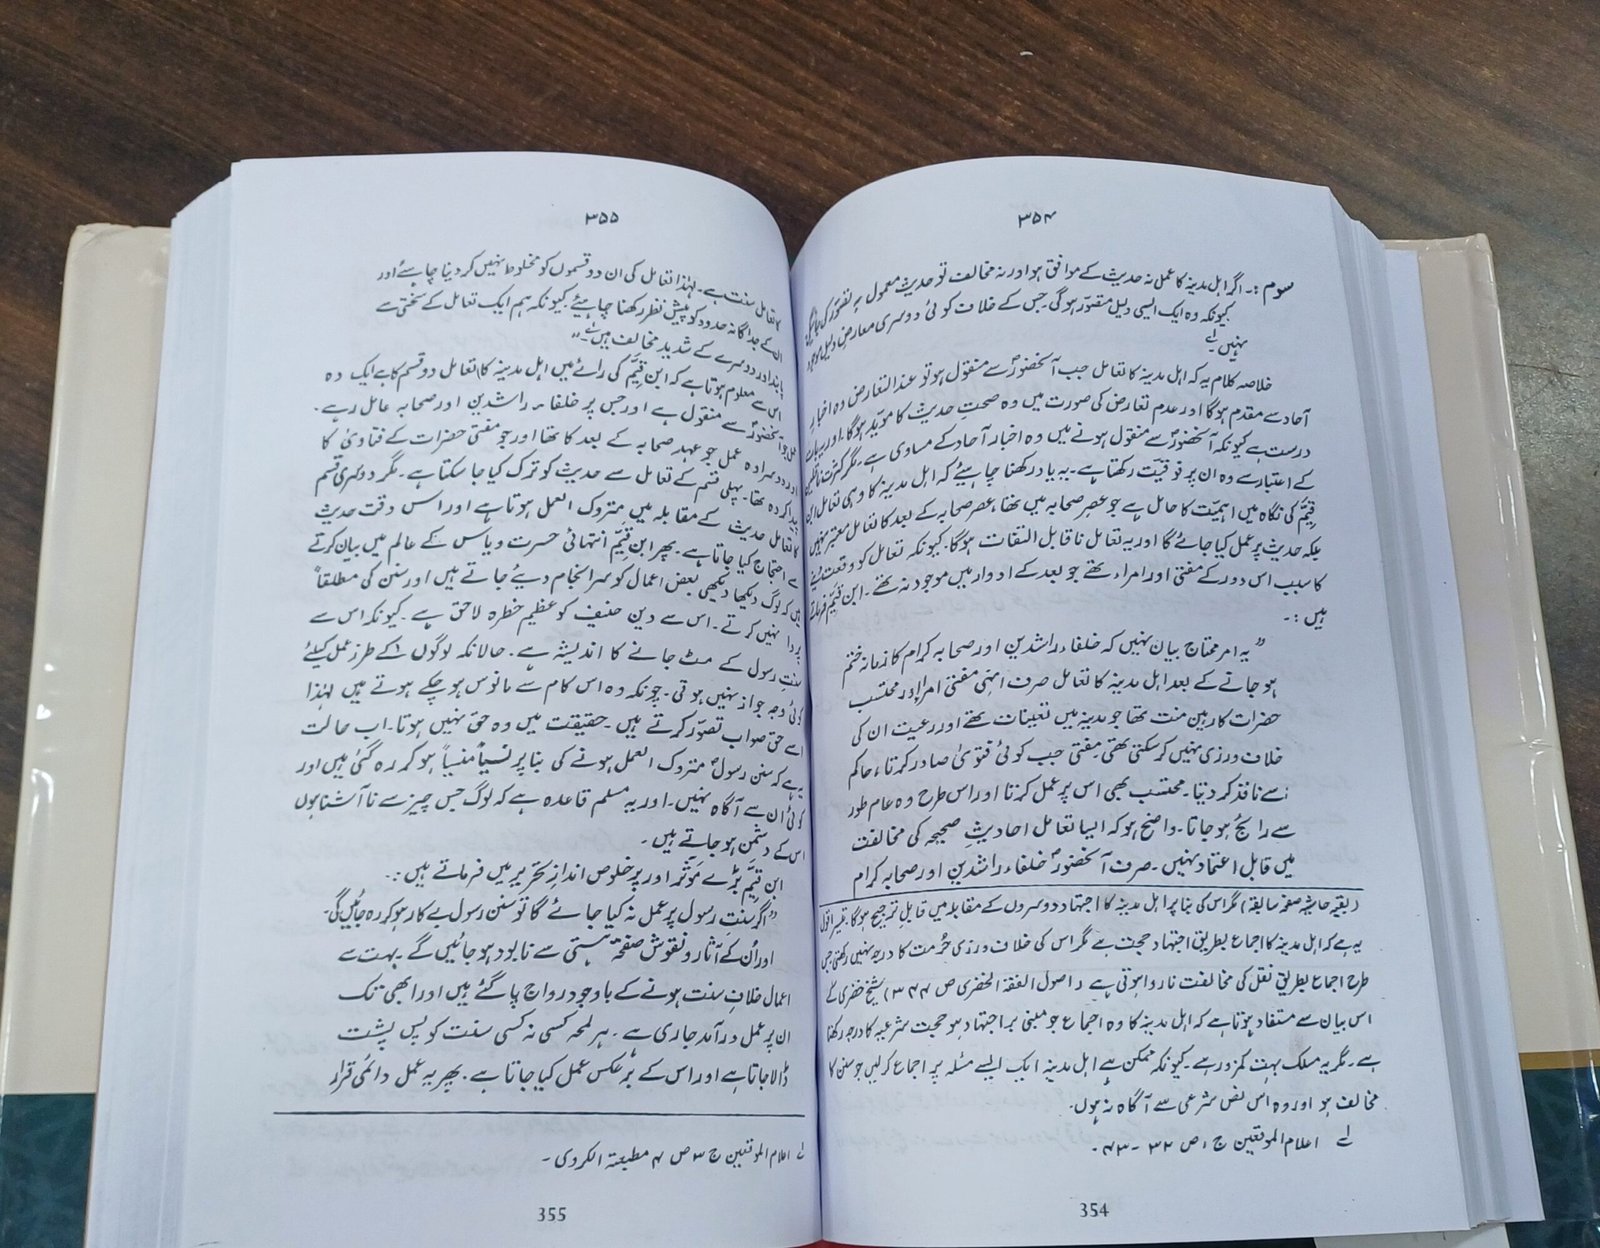 ۳۵۴
سوم :۔ اگر اہل مدینہ کا عمل نہ حدیث کے موافق ہو اور نہ مخالف تو حدیث معمول بہ تصوّر کی جائیگی
کیونکہ وہ ایک ایسی دلیل مقصوّر ہوگی۔ جس کے خلاف کوئی دوسری معارض دلیل موجود
نہیں۔ لے
خلاصہ کلام یہ کہ اہل مدینہ کا تعامل جب آنحضورؐ سے منقول ہو تو عند التعارض وہ اخبار
آحاد سے مقدم ہوگا اور عدم تعارض کی صورت میں وہ صحتِ حدیث کا مؤید ہوگا۔ اور یہ بات
درست ہے کیونکہ آنحضورؐ سے منقول ہونے میں وہ اخبار آحاد کے مساوی ہے۔ مگر کثرت ناقلین
کے اعتبار سے وہ ان پر فوقیّت رکھتا ہے۔ یہ یاد رکھنا چاہیئے کہ اہل مدینہ کا وہی تعامل ابن
قیّمؒ کی نگاہ میں اہمیّت کا حامل ہے جو عصرِ صحابہ میں تھا، عصر صحابہ کے بعد کا تعامل معتبر نہیں
بلکہ حدیث پر عمل کیا جائے گا اور یہ تعامل ناقابل التفات ہوگا۔ کیونکہ تعامل کو وقعت دینے
کا سبب اس دور کے مفتی اور امراء تھے جو بعد کے ادوار میں موجود نہ تھے۔ ابن قیّمؒ فرماتے
ہیں :۔
”یہ امر محتاج بیان نہیں کہ خلفاء راشدین اور صحابہ کرام کا زمانہ ختم
ہو جانے کے بعد اہل مدینہ کا تعامل صرف انہی مفتی امراء اور محتسب
حضرات کا رہین منت تھا جو مدینہ میں تعینات تھے اور رعیت ان کی
خلاف ورزی نہیں کر سکتی تھی۔ مفتی جب کوئی فتویٰ صادر کرتا، حاکم
اسے نافذ کر دیتا۔ محتسب بھی اس پر عمل کرتا اور اس طرح وہ عام طور
سے رائج ہو جاتا۔ واضح ہو کہ ایسا تعامل احادیثِ صحیحہ کی مخالفت
میں قابل اعتماد نہیں۔ صرف آنحضورؐ خلفاء راشدین اور صحابہ کرام
(بقیہ حاشیہ صفحہ سابقہ) مگر اس کی بنا پر اہل مدینہ کا اجتہاد دوسروں کے مقابلہ میں قابلِ ترجیح ہوگا، تیسرا قول
یہ ہے کہ اہل مدینہ کا اجماع بطریق اجتہاد حجت ہے مگر اس کی خلاف ورزی حُرمت کا درجہ نہیں رکھتی جس
طرح اجماع بطریق نقل کی مخالفت ناروا ہوتی ہے (اصول الفقہ الخضری ص ۳۴۴) شیخ خضری کے
اس بیان سے مستفاد ہوتا ہے کہ اہل مدینہ کا وہ اجماع جو مبنی بر اجتہاد ہو حجت شرعیہ کا درجہ رکھتا
ہے۔ مگر یہ مسلک بہت کمزور ہے۔ کیونکہ ممکن ہے اہل مدینہ ایک ایسے مسئلہ پر اجماع کرلیں جو سنن کا
مخالف ہو اور وہ اس نص شرعی سے آگاہ نہ ہوں۔
لے اعلام الموقعین ج ۱ ص ۳۲ - ۴۳۔
354
۳۵۵
کا تعامل سنت ہے۔ لہٰذا تعامل کی ان دو قسموں کو مخلوط نہیں کر دینا چاہیئے اور
ان کے جداگانہ حدود کو پیش نظر رکھنا چاہیئے۔ کیونکہ ہم ایک تعامل کے سختی سے
پابند اور دوسرے کے شدید مخالف ہیں۔“ لے
اس سے معلوم ہوتا ہے کہ ابن قیّم کی رائے میں اہل مدینہ کا تعامل دو قسم کا ہے ایک وہ
عمل جو آنحضورؐ سے منقول ہے اور جس پر خلفاء راشدین اور صحابہ عامل رہے۔
اور دوسرا وہ عمل جو عہد صحابہ کے بعد کا تھا اور جو مفتی حضرات کے فتاویٰ کا
پیدا کردہ تھا۔ پہلی قسم کے تعامل سے حدیث کو ترک کیا جا سکتا ہے۔ مگر دوسری قسم
کا تعامل حدیث کے مقابلہ میں متروک العمل ہوتا ہے اور اس وقت حدیث
سے احتجاج کیا جاتا ہے۔ پھر ابن قیّم انتہائی حسرت و یاس کے عالم میں بیان کرتے
ہیں کہ لوگ دیکھا دیکھی بعض اعمال کو سر انجام دیئے جاتے ہیں اور سنن کی مطلقاً
پروا نہیں کرتے۔ اس سے دین حنیف کو عظیم خطرہ لاحق ہے۔ کیونکہ اس سے
سنتِ رسول کے مٹ جانے کا اندیشہ ہے۔ حالانکہ لوگوں کے طرز عمل کیلئے
کوئی وجہ جواز نہیں ہوتی۔ چونکہ وہ اس کام سے مانوس ہو چکے ہوتے ہیں لہٰذا
اسے حق صواب تصوّر کرتے ہیں۔ حقیقت میں وہ حق نہیں ہوتا۔ اب حالت
یہ ہے کہ سنن رسولؐ متروک العمل ہونے کی بنا پر نسیاً منسیاً ہو کر رہ گئی ہیں اور
کوئی اُن سے آگاہ نہیں۔ اور یہ مسلم قاعدہ ہے کہ لوگ جس چیز سے ناآشنا ہوں
اس کے دشمن ہو جاتے ہیں۔
ابن قیّم بڑے مؤثر اور پر خلوص انداز تحریر میں فرماتے ہیں :۔
”اگر سنت رسول پر عمل نہ کیا جائے گا تو سنن رسول بے کار ہو کر رہ جائیں گی۔
اور اُن کے آثار و نقوش صفحۂ ہستی سے نابود ہو جائیں گے۔ بہت سے
اعمال خلافِ سنت ہونے کے باوجود رواج پا گئے ہیں اور ابھی تک
ان پر عمل درآمد جاری ہے۔ ہر لمحہ کسی نہ کسی سنت کو پس پشت
ڈالا جاتا ہے اور اس کے برعکس عمل کیا جاتا ہے۔ پھر یہ عمل دائمی قرار
لے اعلام الموقعین ج ۳ ص ۷ مطبعۃ الکردی۔
355